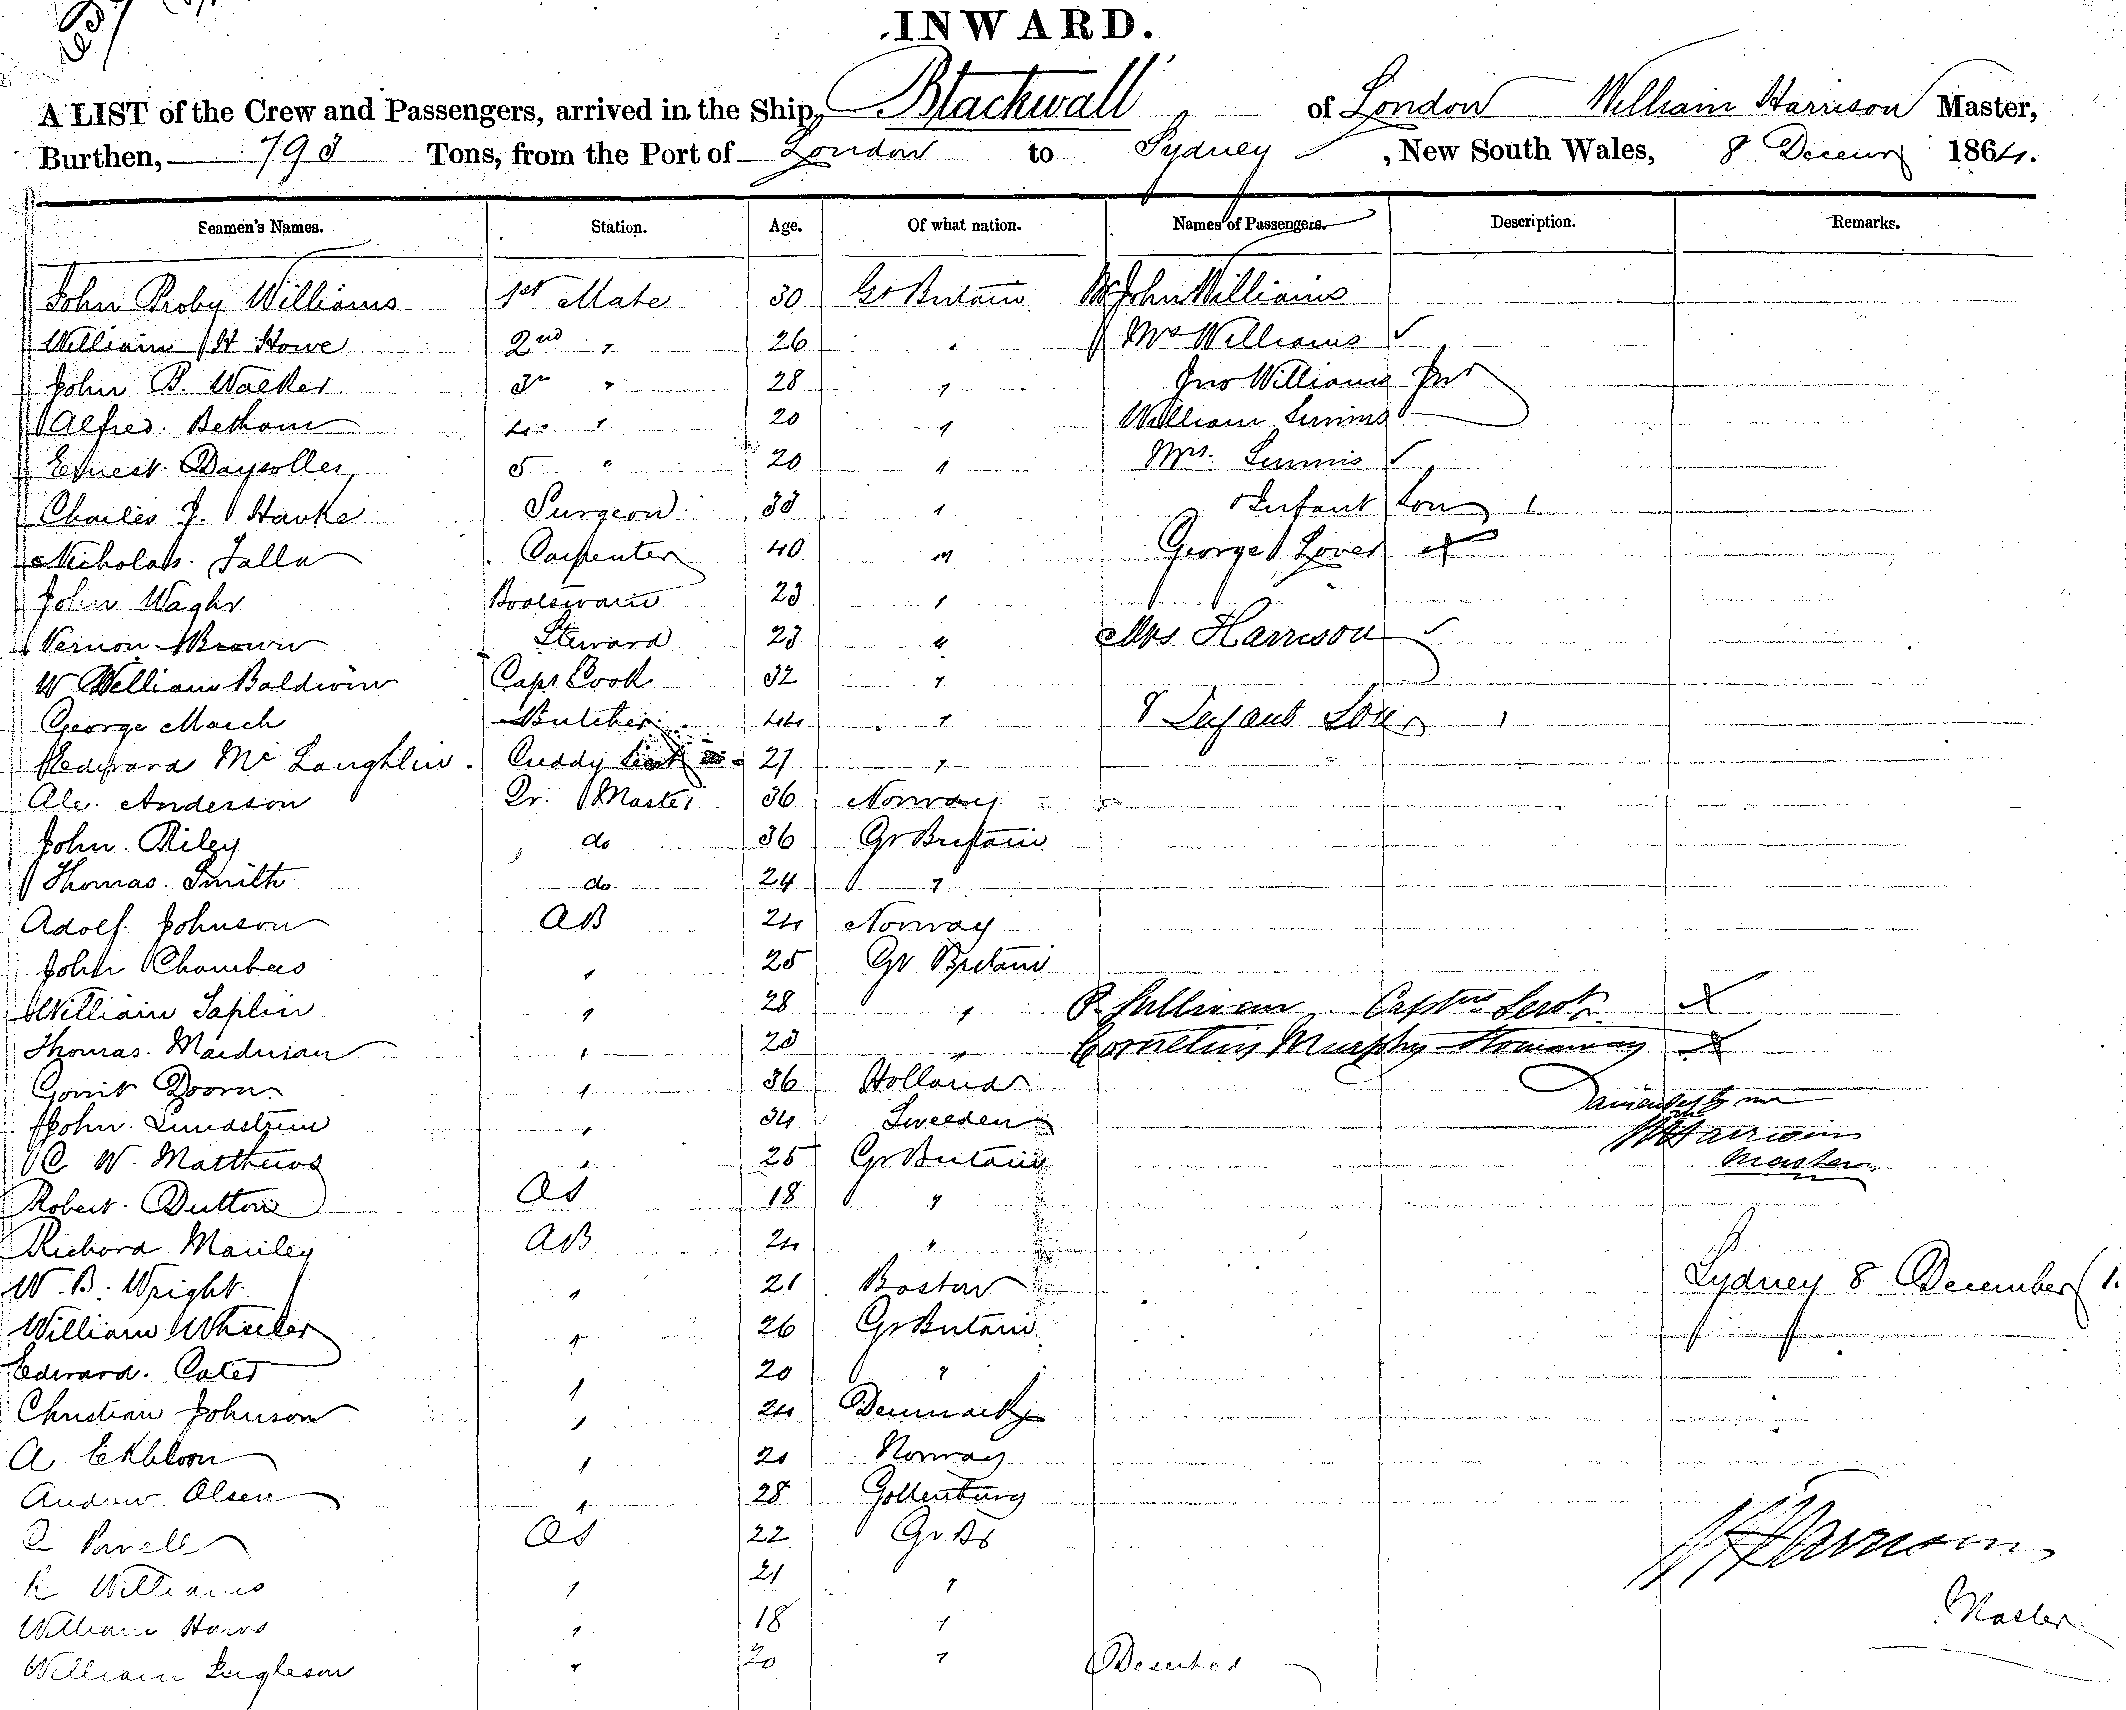 INWARD.
A LIST of the Crew and Passengers, arrived in the Ship, Blackwall of London William Harrison Master,
Burthen, 793 Tons, from the Port of London to Sydney, New South Wales, 8 Decemr 1864.
Seamen's Names. Station. Age. Of what nation. Names of Passengers. Description. Remarks.
John Proby Williams 1st Mate 30 Gt Britain Mr John Williams
William H Howe 2nd " 26 " Mrs Williams
John B. Walker 3rd " 28 " Jno Williams Junr
Alfred Betham 4 " 20 " William
Ernest 5 " 20 " Mrs.
Charles J. Hawke Surgeon 33 " Infant Son 1
Nicholas Falla Carpenter 40 " George Lover
John Boatswain 23 "
Vernon Brown Steward 23 " Mrs Harrison
W William Baldwin Capt Cook 32 "
George March Butcher 44 " & Infant Son 1
Edward Mc Laughlin Cuddy 21 "
Alex. Anderson Qr. Master 36 Norway
John Riley do 36 Gr Britain
Thomas Smith do 24 "
Adolf Johnson AB 24 Norway
John Chambers " 25 Gr Britain
William Taplin " 28 " P. Sullivan Captns Servt X
Thomas " 23 " Cornelius Murphy Stowaway X
Gerrit Doorn " 36 Holland
John Lundstrum " 34 Sweeden
C W. Matthews " 25 Gr Britain
W Harrison
Master
Robert Dutton OS 18 "
Richard Manley AB 24 "
W. B. Wright " 21 Boston Sydney 8 December
William Wheeler " 26 Gr Britain
Edward Cates " 20 "
Christian Johnson " 24 Denmark
A Ekbloom " 21 Norway
Andrew Olsen " 28 Gottenburg
Powell OS 22 Gr Br
W Harrison
R Williams " 21 "
Master
William " 18 "
William Ingleson " 20 " Deserted